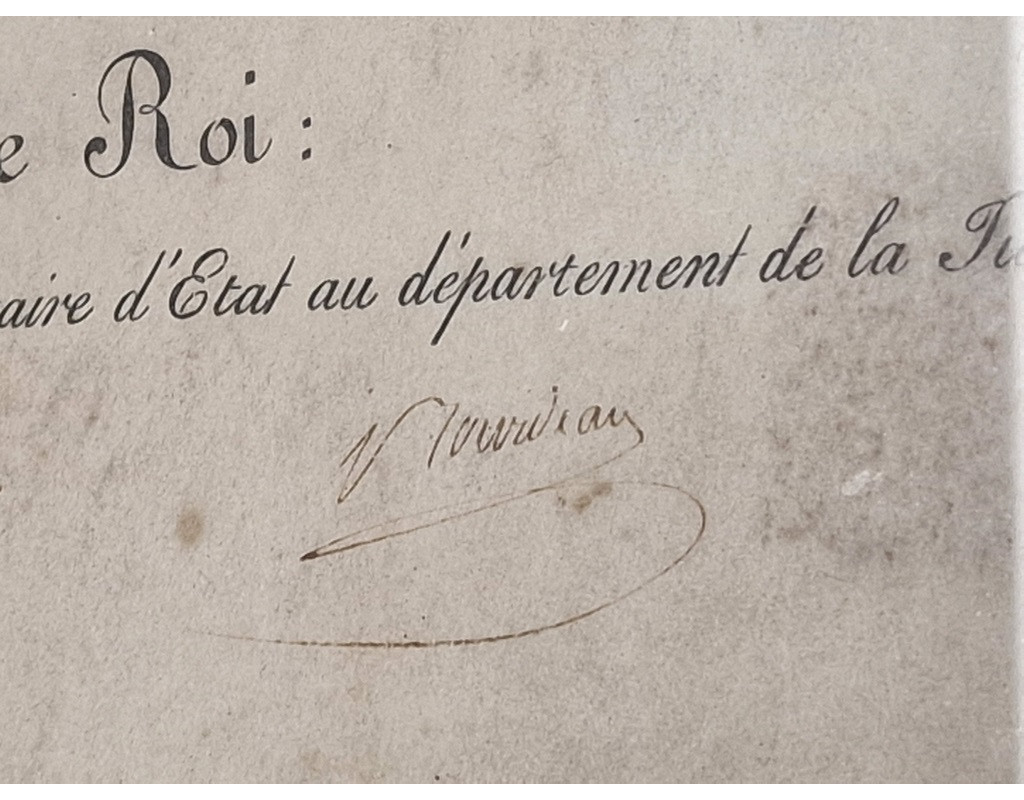 e Roi :
aire d'Etat au département de la